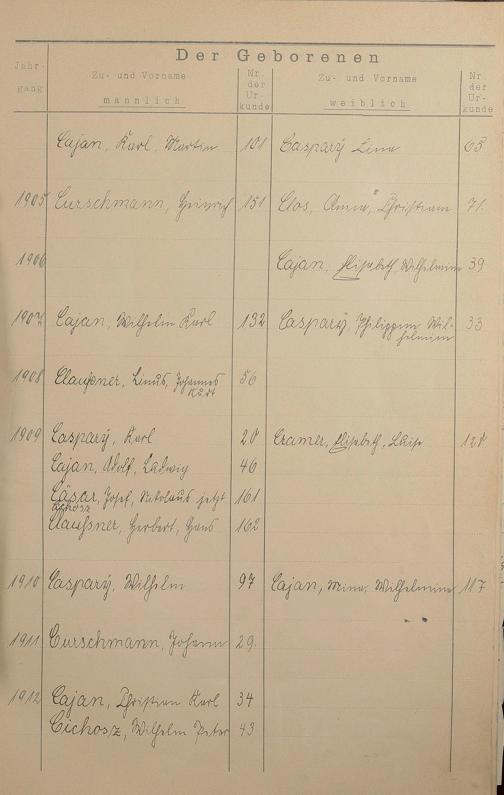 Der Geborenen
Jahr-
gang
Zu- und Vorname
männlich
Nr.
der
Ur-
kunde
Zu- und Vorname
weiblich
Nr
der
Ur-
kunde
Cajan, Karl, Martin 101 Caspary Lina 63
1905 Curschmann, Heinrich 151 Clos, Anna, Christiane 71
1906 Cajan, Elisabeth, Wilhelmine 39
1907 Cajan, Wilhelm Karl 132 Caspary Philippine Wil-
helmine 33
1908 Claußner, Linus, Johannes
Kurt 56
1909 Caspary, Karl 20 Cramer, Elisabeth, Luise
Cajan, Adolf, Ludwig 46
Cäsar, Josef, Nikolaus jetzt 161
Cichosz
Claußner, Herbert, Hans 162
1910 Caspary, Wilhelm 97 Cajan, Mina, Wilhelmine 117
1911 Curschmann, Johann 29.
1912 Cajan, Christian Karl 34
Cichosz, Wilhelm Peter 43